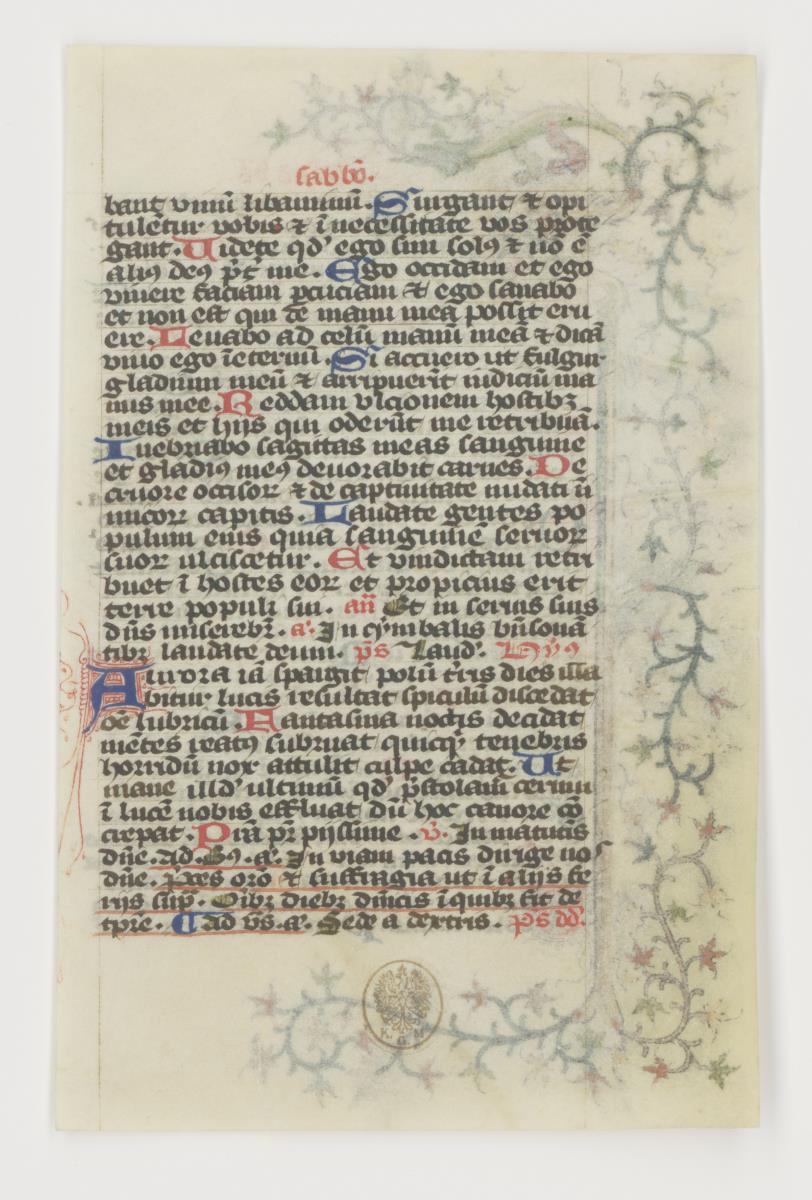 sabbō.
bant vinū libaminū. Surgant ⁊ opi
tulentur vobis ⁊ ī necessitate vos prote
gant. Videte qd' ego sim solꝰ ⁊ nō ē
aliꝰ deꝰ p̄t me. Ego occidam et ego
vivere faciam percuciam ⁊ ego sanabo
et non est qui de manu mea possit eru
ere. Levabo ad celū manū meā ⁊ dicā
vivo ego īeternū. Si accuero ut fulgur
gladium meū ⁊ arripuerit iudiciū ma
nus mee. Reddam ulcionem hostibꝫ
meis et hijs qui oderūt me retribuā.
Inebriabo sagittas meas sanguine
et gladiꝰ meꝰ devorabit carnes. De
cruore occisoꝝ ⁊ de captivitate nudati ū
imicoꝝ capitis. Laudate gentes po
pulum eius quia sanguinē servoꝝ
suoꝝ ulciscetur. Et vindictam retri
buet ī hostes eoꝝ et propicius erit
terre populi sui. an̄ Et in servis suis
dūs miserebr̄. a. In cymbalis bn̄sonā
tibꝫ laudate deum. ps̄ Laud'. Hyꝰ
Aurora iā spargit polū tr̄is dies illa
bitur lucis resultat spiculū discedat
oē lubricū. Fantasma noctis decidat
mētes reatꝰ subruat quicq̄ tenebris
horridū nox attulit culpe cadat. Ut
mane illd' ultimū qd' p̄stolam cernui
ī lucē nobis effluat dū hoc canore cō
crepat. P̄sta pr̄ pijssime. v̄. In matutis
dn̄e. Ad. Bꝰ. a. In viam pacis dirige nos
dn̄e. p̄ces oro ⁊ suffragia ut ī alijs fe
rijs sup̄. Oībꝫ diebꝫ dn̄icis ī quibꝫ fit de
tp̄re. Ad vs̄. a. Sede a dextris. ps̄ dd̄.
K. G. M.